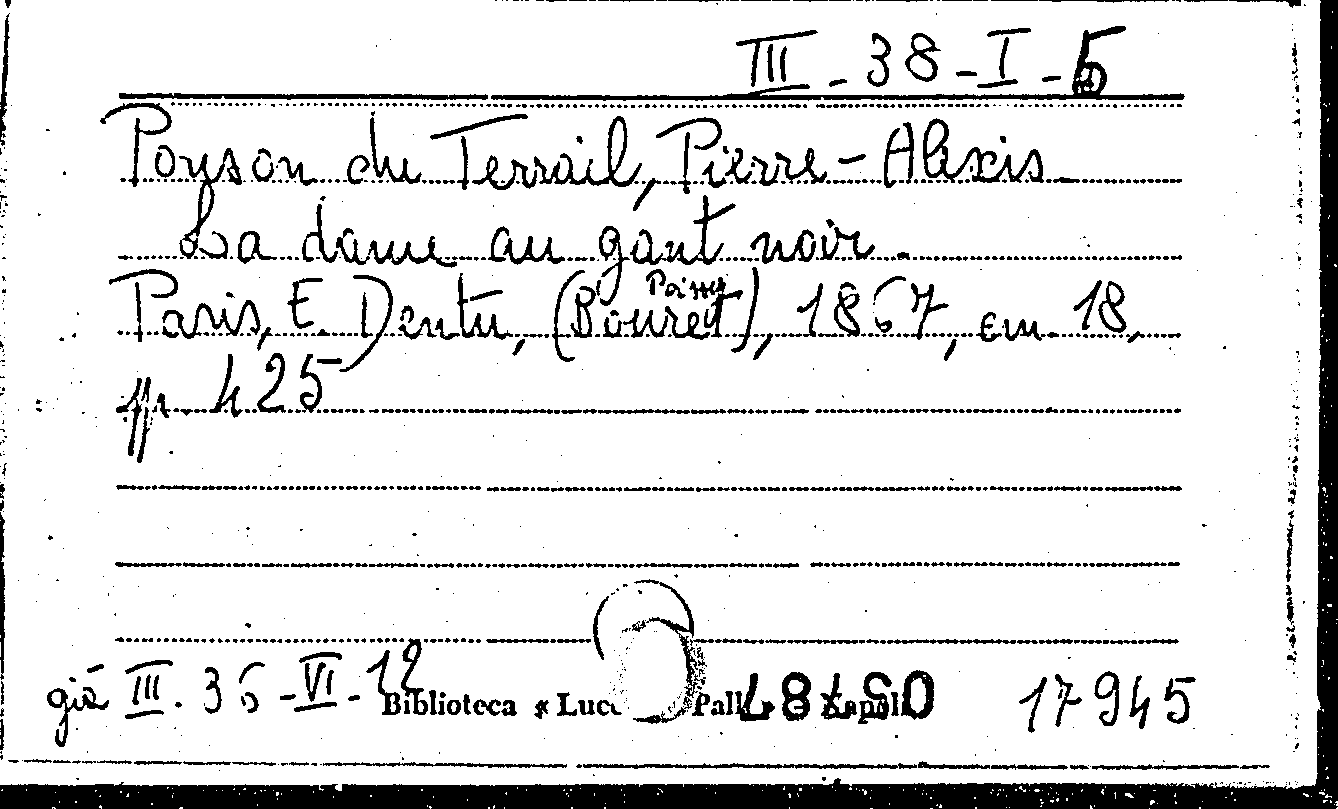 III - 38 - I - 5
Ponson du Terrail, Pierre-Alexis.
La dame au gant noir.
Paris, E. Dentu, (Poissy Bouret), 1867, cm. 18,
pp. 425
già III. 36 - VI - 12
Biblioteca « Lucc Pall Napoli
17945